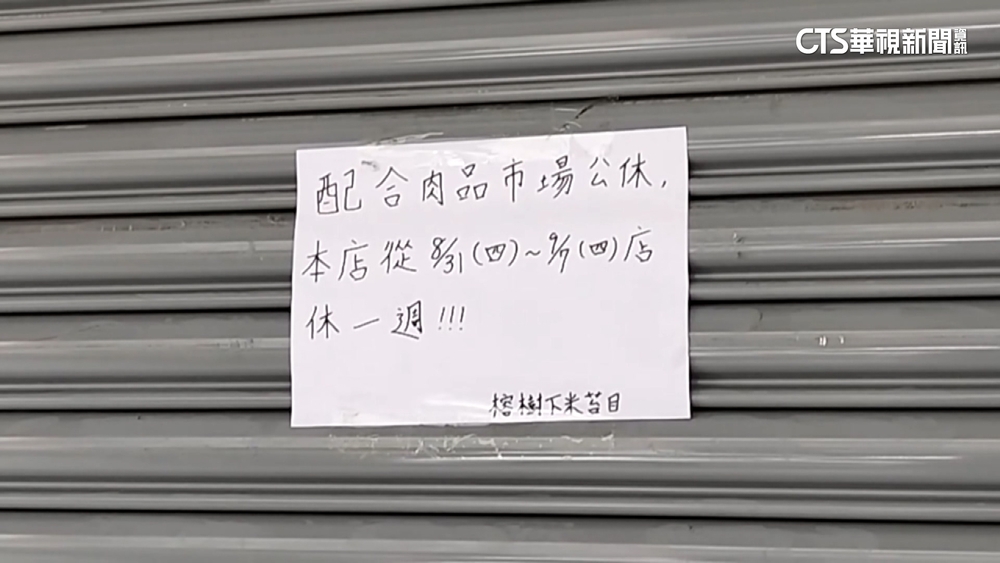 CTS華視新聞資訊
配合肉品市場公休,
本店從 8/31(四)~9/7(四)店
休一週!!!
榕樹下米苔目